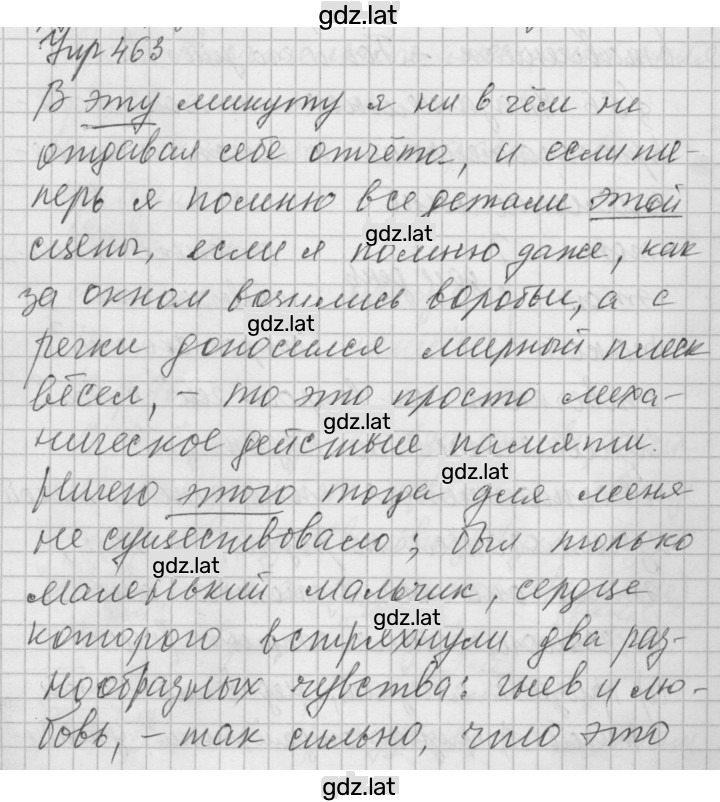 gdz.lat
Упр 463
В эту минуту я ни в чём не
отдавал себе отчёта, и если те-
перь я помню все детали этой
gdz.lat
сцены, если я помню даже, как
за окном возились воробьи, а с
gdz.lat
речки доносился мирный плеск
вёсел, – то это просто меха-
gdz.lat
ническое действие памяти.
gdz.lat
Ничего этого тогда для меня
не существовало; был только
gdz.lat
маленький мальчик, сердце
gdz.lat
которого встряхнули два раз-
нообразных чувства: гнев и лю-
бовь, – так сильно, что это
gdz.lat